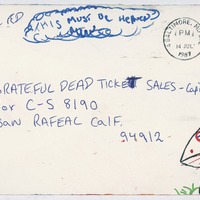 THIS MUST BE HEAVEN
BALTIMORE, MD
PM
14 JUL
1987
GRATEFUL DEAD TICKET SALES - Capit
or C-S 8190
San RAFEAL Calf.
94912